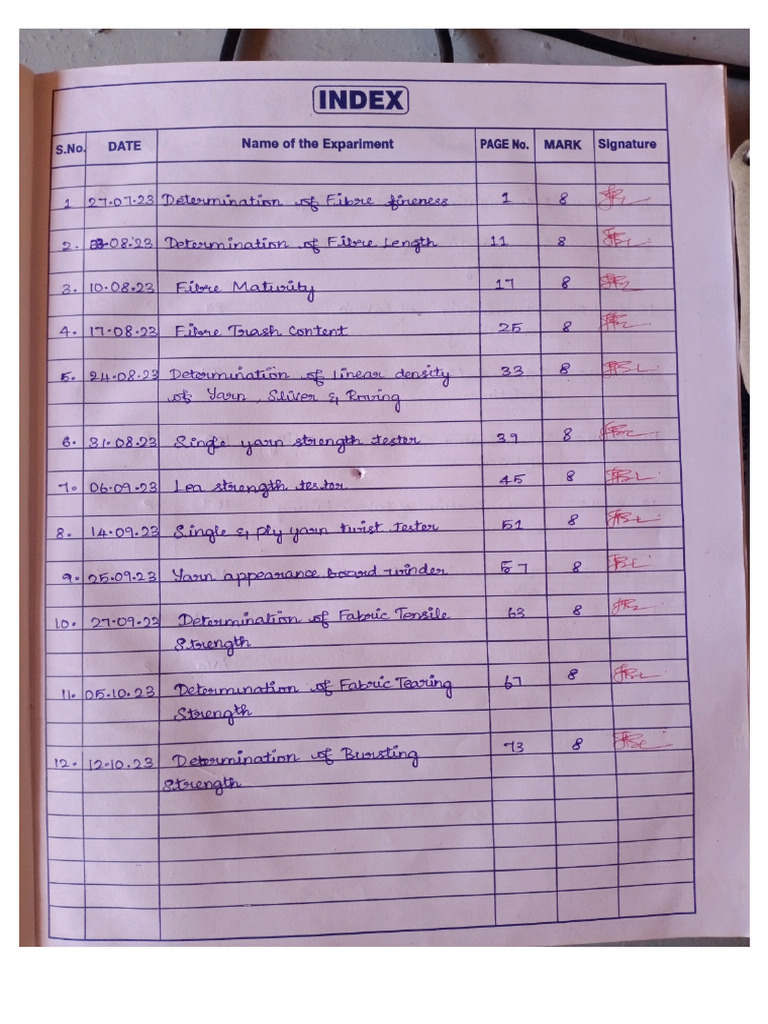 INDEX
S.No. DATE Name of the Expariment PAGE No. MARK Signature
1 27.07.23 Determination of Fibre fineness 1 8
2. -08.23 Determination of Fibre Length 11 8
3. 10.08.23 Fibre Maturity 17 8
4. 17.08.23 Fibre Trash Content 25 8
5. 24.08.23 Determination of linear density 33 8
of Yarn, Sliver & Roving
6. 31.08.23 Single yarn strength tester 39 8
7. 06.09.23 Lea strength tester 45 8
8. 14.09.23 Single & ply yarn twist tester 51 8
9. 25.09.23 Yarn appearance board winder 57 8
10. 27.09.23 Determination of Fabric Tensile 63 8
Strength
11. 05.10.23 Determination of Fabric Tearing 67 8
Strength
12. 12.10.23 Determination of Bursting 73 8
Strength